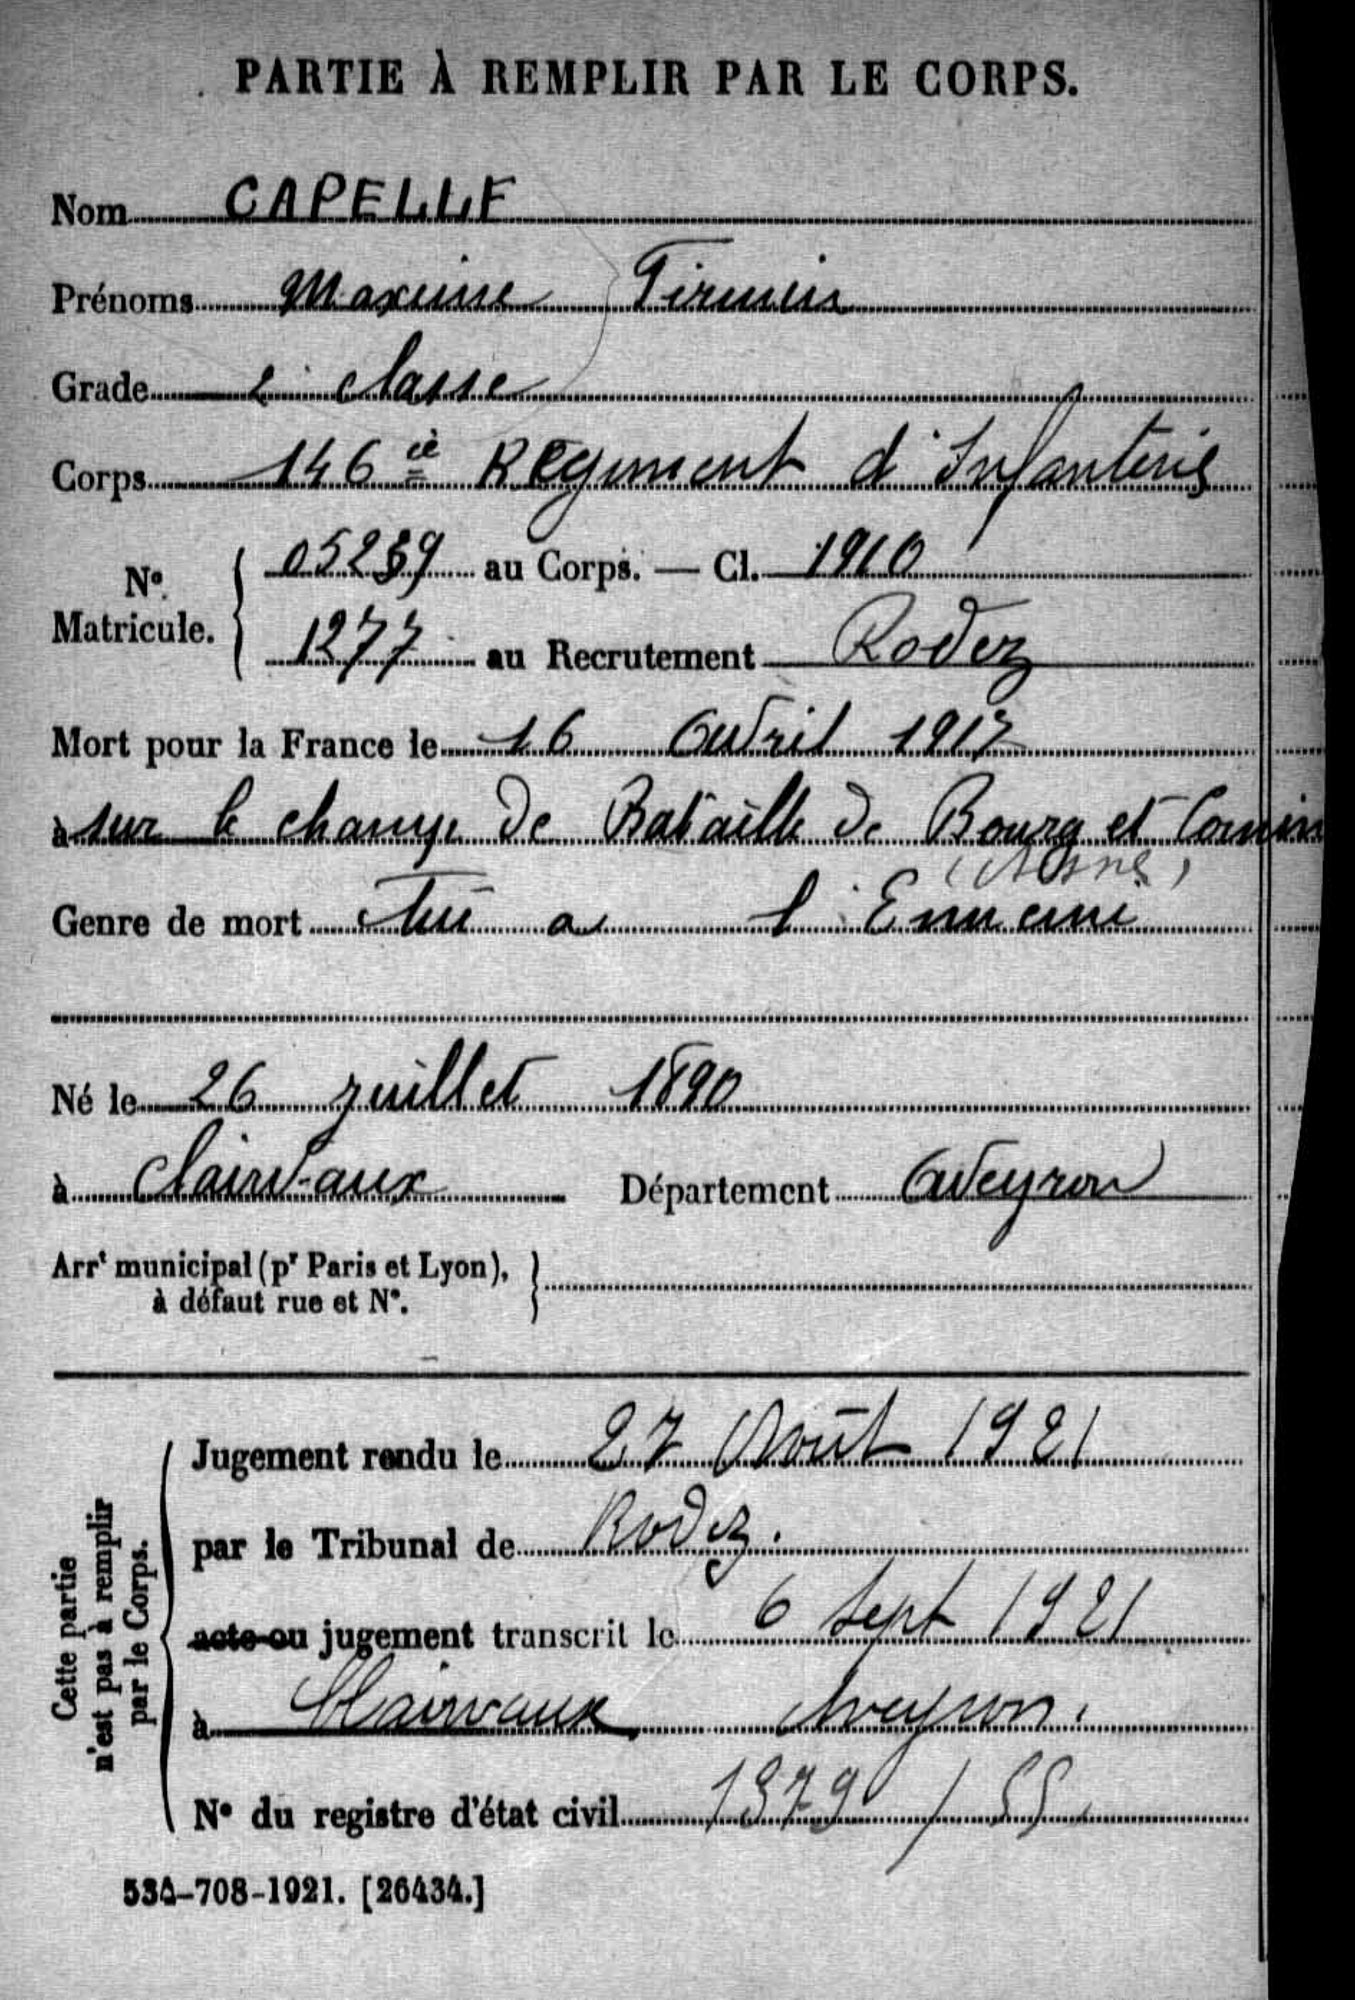 PARTIE À REMPLIR PAR LE CORPS.
Nom CAPELLE
Prénoms Maxime Firmin
Grade 2e classe
Corps 146 ie Régiment d'Infanterie
No Matricule. 05239 au Corps. — Cl. 1910
1277 au Recrutement Rodez
Mort pour la France le 16 Avril 1917
à sur le champ de Bataille de Bourg et Comin
(Aisne)
Genre de mort Tué a l'Ennemi
Né le 26 juillet 1890
à Clairvaux Département Aveyron
Arrt municipal (pr Paris et Lyon),
à défaut rue et No.
Cette partie
n'est pas à remplir
par le Corps.
Jugement rendu le 27 Août 1921
par le Tribunal de Rodez.
acte ou jugement transcrit le 6 Sept 1921
à Clairvaux Aveyron.
No du registre d'état civil 1379 / 55
534-708-1921. [26434.]